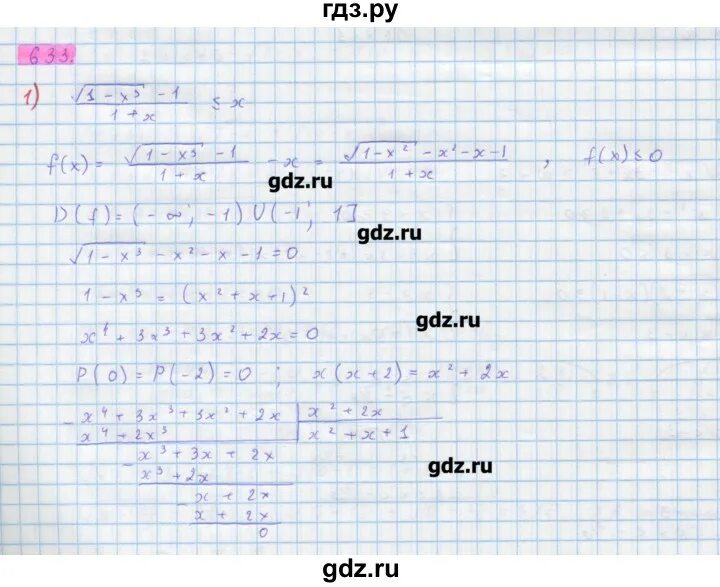 гдз.ру
633.
1) (√(1 - x³) - 1)/(1 + x) ≤ x
f(x) = (√(1 - x³) - 1)/(1 + x) - x = (√(1 - x²) - x² - x - 1)/(1 + x) , f(x) ≤ 0
gdz.ru
D(f) = (-∞; -1) U (-1; 1]
gdz.ru
√(1 - x³) - x² - x - 1 = 0
1 - x³ = (x² + x + 1)²
gdz.ru
x⁴ + 3x³ + 3x² + 2x = 0
P(0) = P(-2) = 0 ; x(x + 2) = x² + 2x
- x⁴ + 3x³ + 3x² + 2x | x² + 2x
x⁴ + 2x³ | x² + x + 1
- x³ + 3x + 2x
gdz.ru
x³ + 2x
- x + 2x
x + 2x
0
gdz.ru